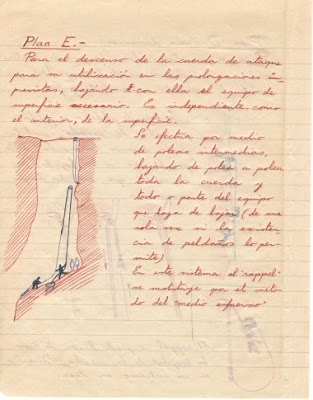 Plan E.-
Para el descenso de la cuerda de ataque
para su utilización en las prolongaciones im-
previstas, bajando con ella el equipo de
superficie necesario. Es independiente, como
el anterior, de la superficie.
Se efectúa por medio
de poleas intermedias,
bajando de polea a polea
toda la cuerda y
todo o parte del equipo
que haya de bajar (de una
sola vez si la existen-
cia de peldaños lo per-
mite)
En este sistema el "rappel"
se sustituye por el méto-
do del "medio esfuerzo"